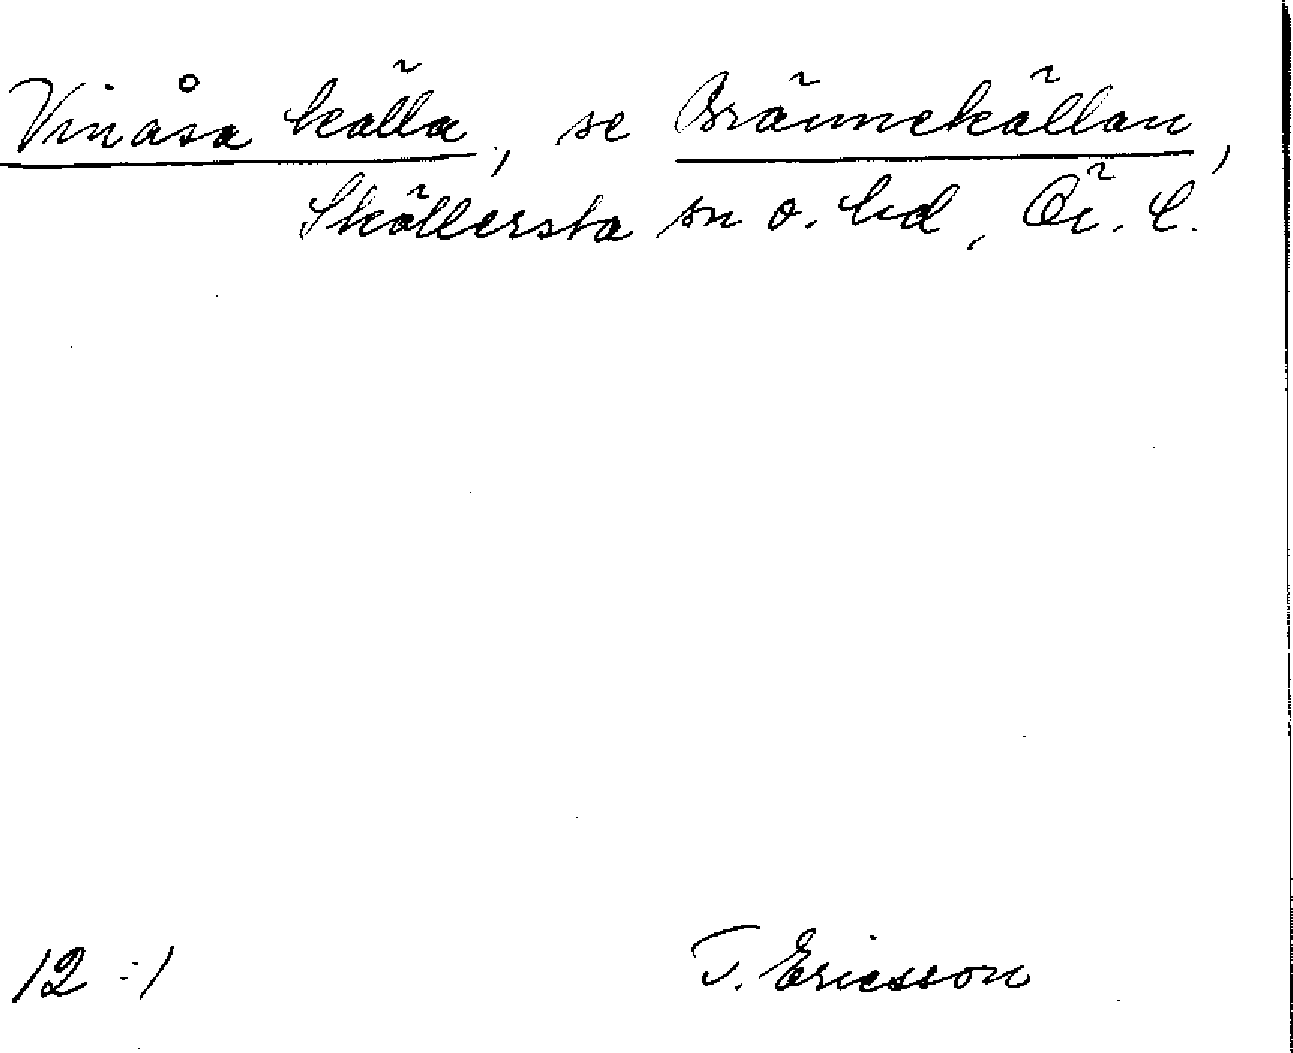 Vinåsa källa, se Brännekällan,
Sköllersta sn o. hd, Ör. l.
12:1 T. Ericsson